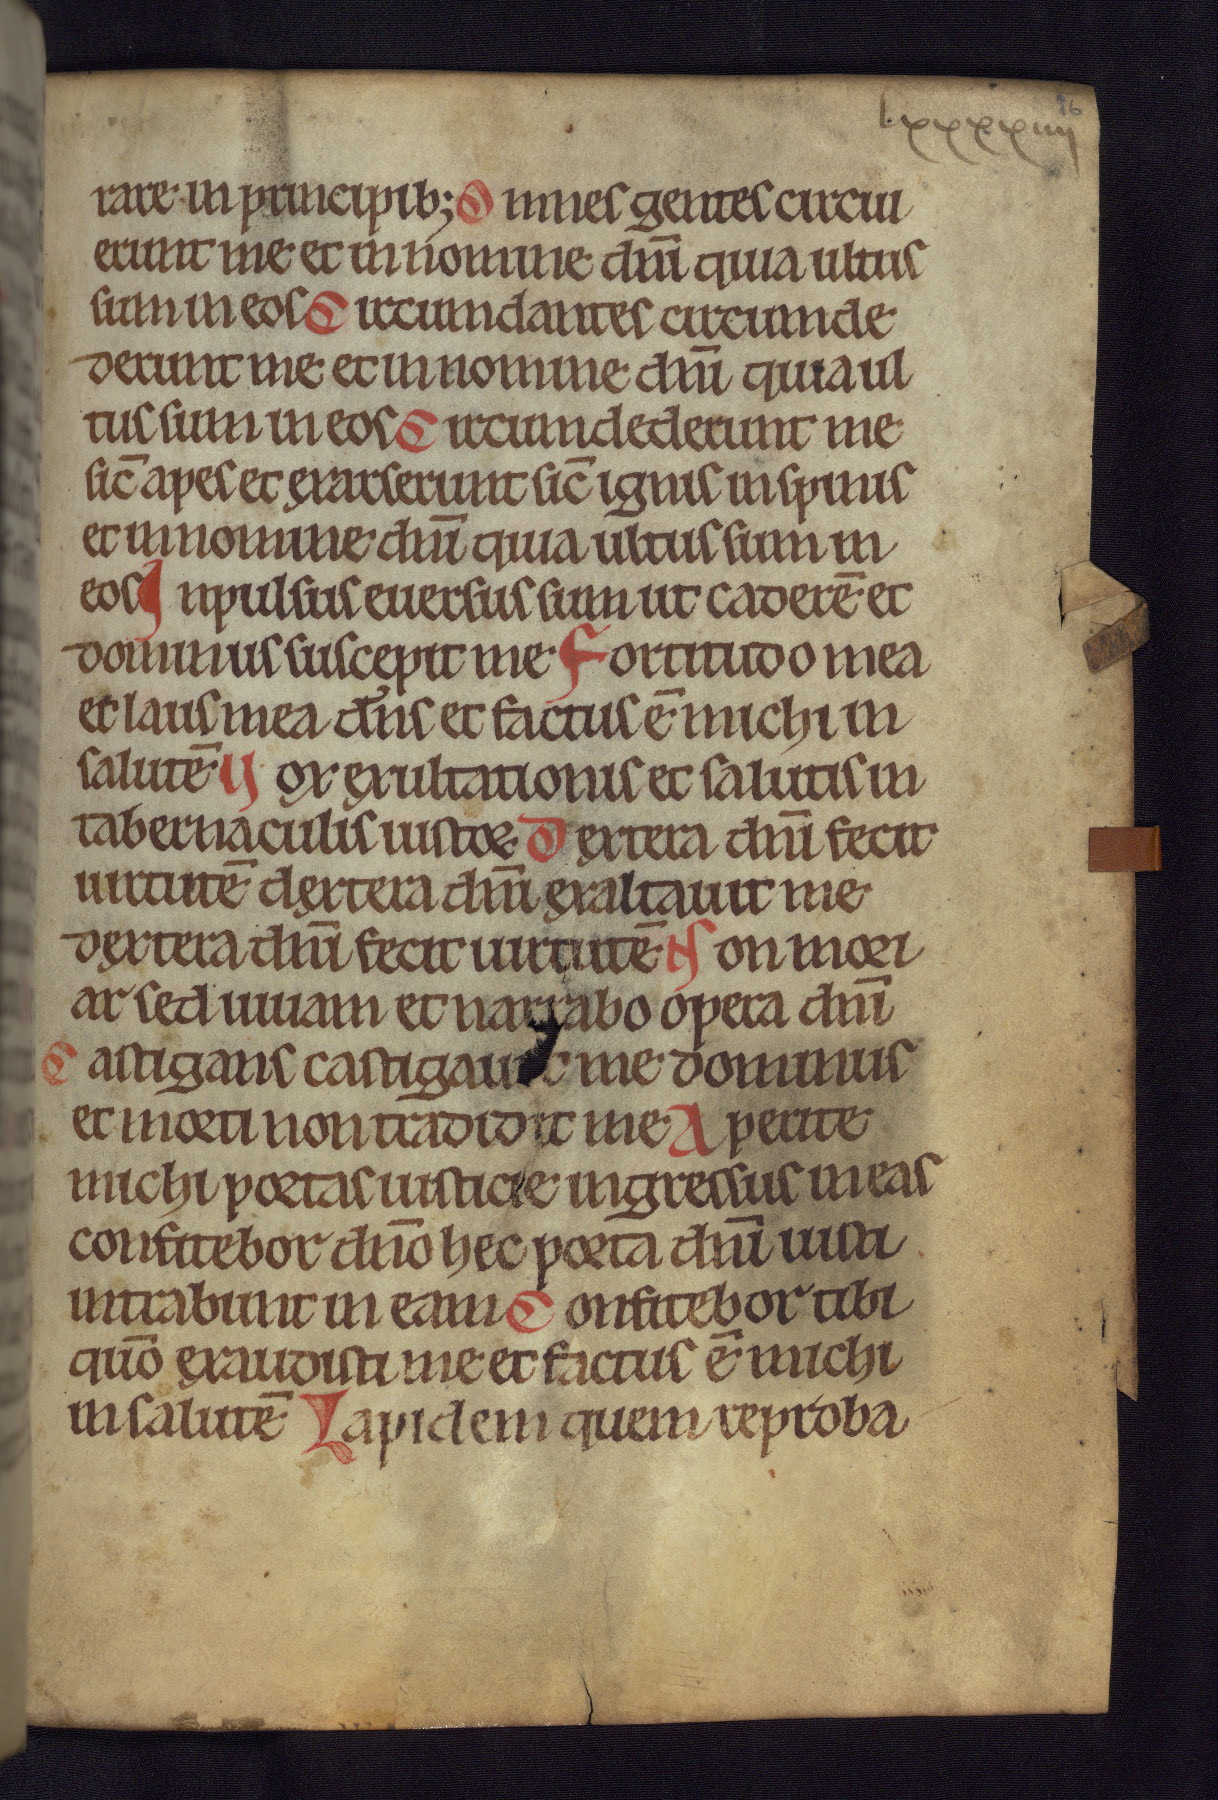 lxxxxiiij
96
rare in principib; Omnes gentes circui
erunt me et in nomine dnī quia ultus
sum in eos Circumdantes circumde
derunt me et in nomine dnī quia ul
tus sum in eos Circumdederunt me
sic̄ apes et exarserunt sic̄ ignis in spinis
et in nomine dnī quia ultus sum in
eos Inpulsus euersus sum ut caderē et
dominus suscepit me Fortitudo mea
et laus mea dn̄s et factus ē michi in
salutē Vox exultationis et salutis in
tabernaculis iustoꝝ Dextera dnī fecit
uirtutē dextera dnī exaltauit me
dextera dnī fecit uirtutē Non mori
ar sed uiuam et narrabo opera dnī
Castigans castigauit me dominus
et morti non tradidit me Aperite
michi portas iusticie ingressus in eas
confitebor dnō hec porta dnī iusti
intrabunt in eam Confitebor tibi
qūo exaudisti me et factus ē michi
in salutē Lapidem quem reproba